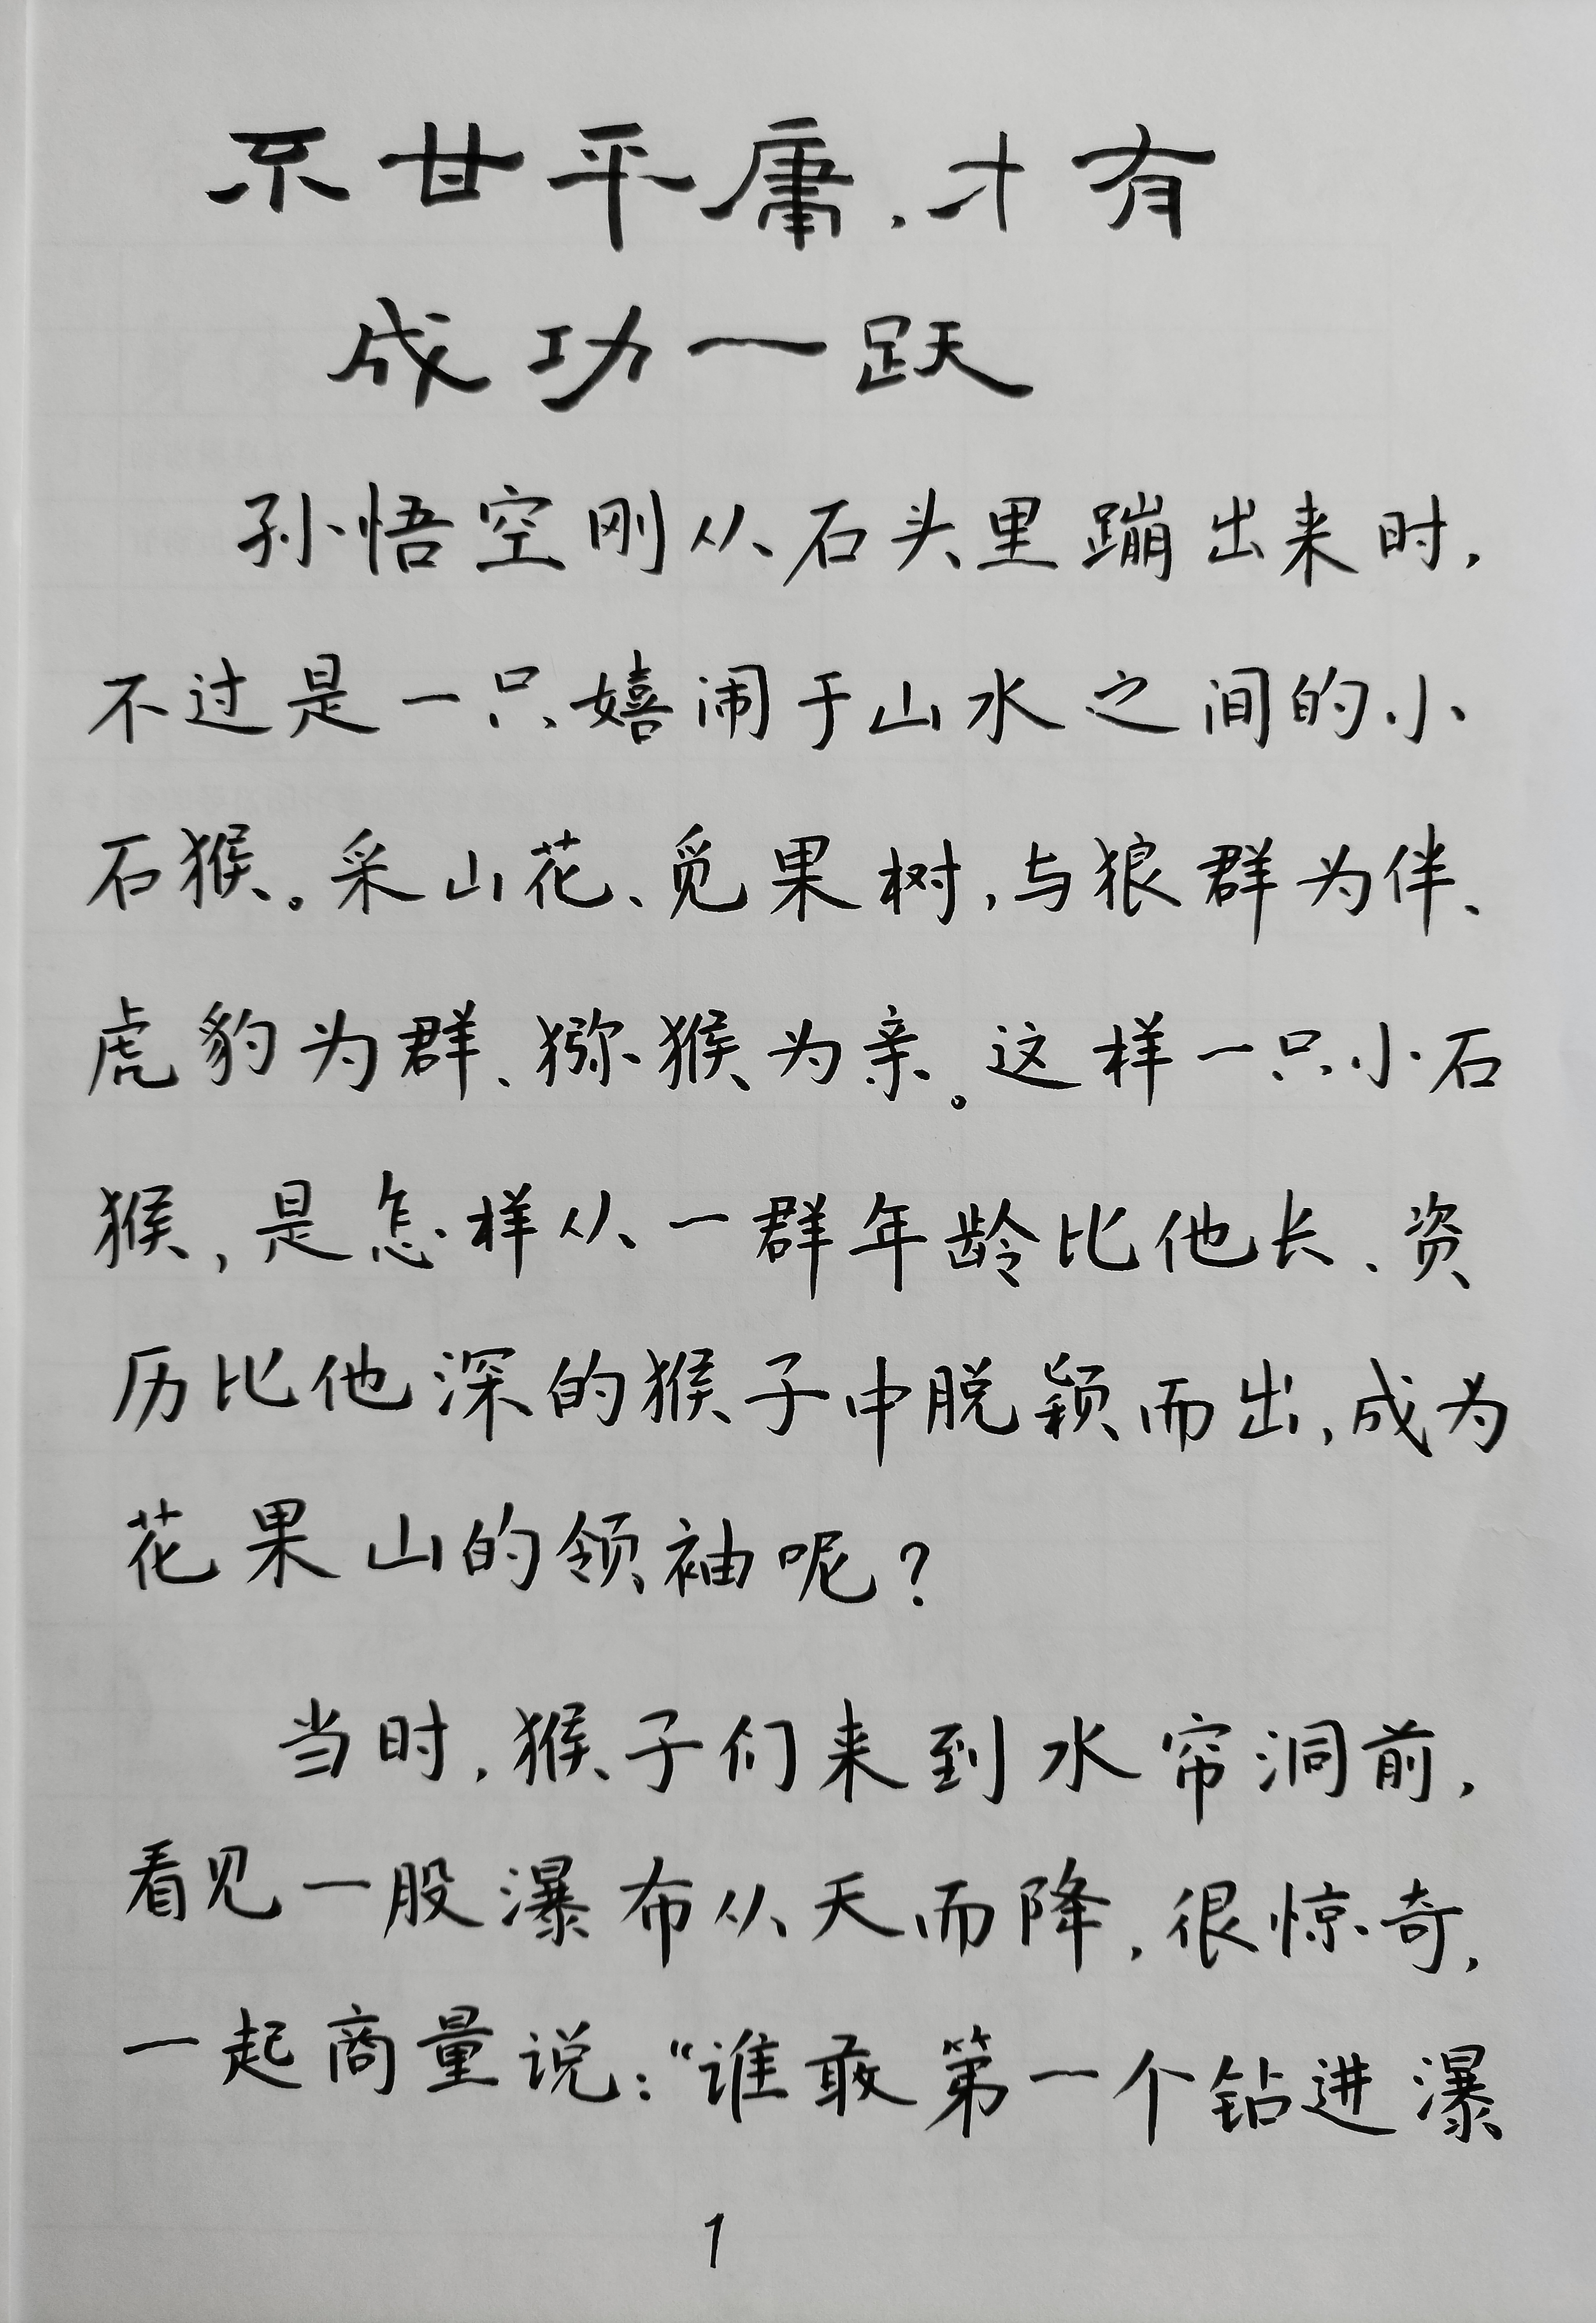 不甘平庸，才有
成功一跃
孙悟空刚从石头里蹦出来时，
不过是一只嬉闹于山水之间的小
石猴。采山花、觅果树，与狼群为伴、
虎豹为群、猕猴为亲。这样一只小石
猴，是怎样从一群年龄比他长、资
历比他深的猴子中脱颖而出，成为
花果山的领袖呢？
当时，猴子们来到水帘洞前，
看见一股瀑布从天而降，很惊奇，
一起商量说：“谁敢第一个钻进瀑
1